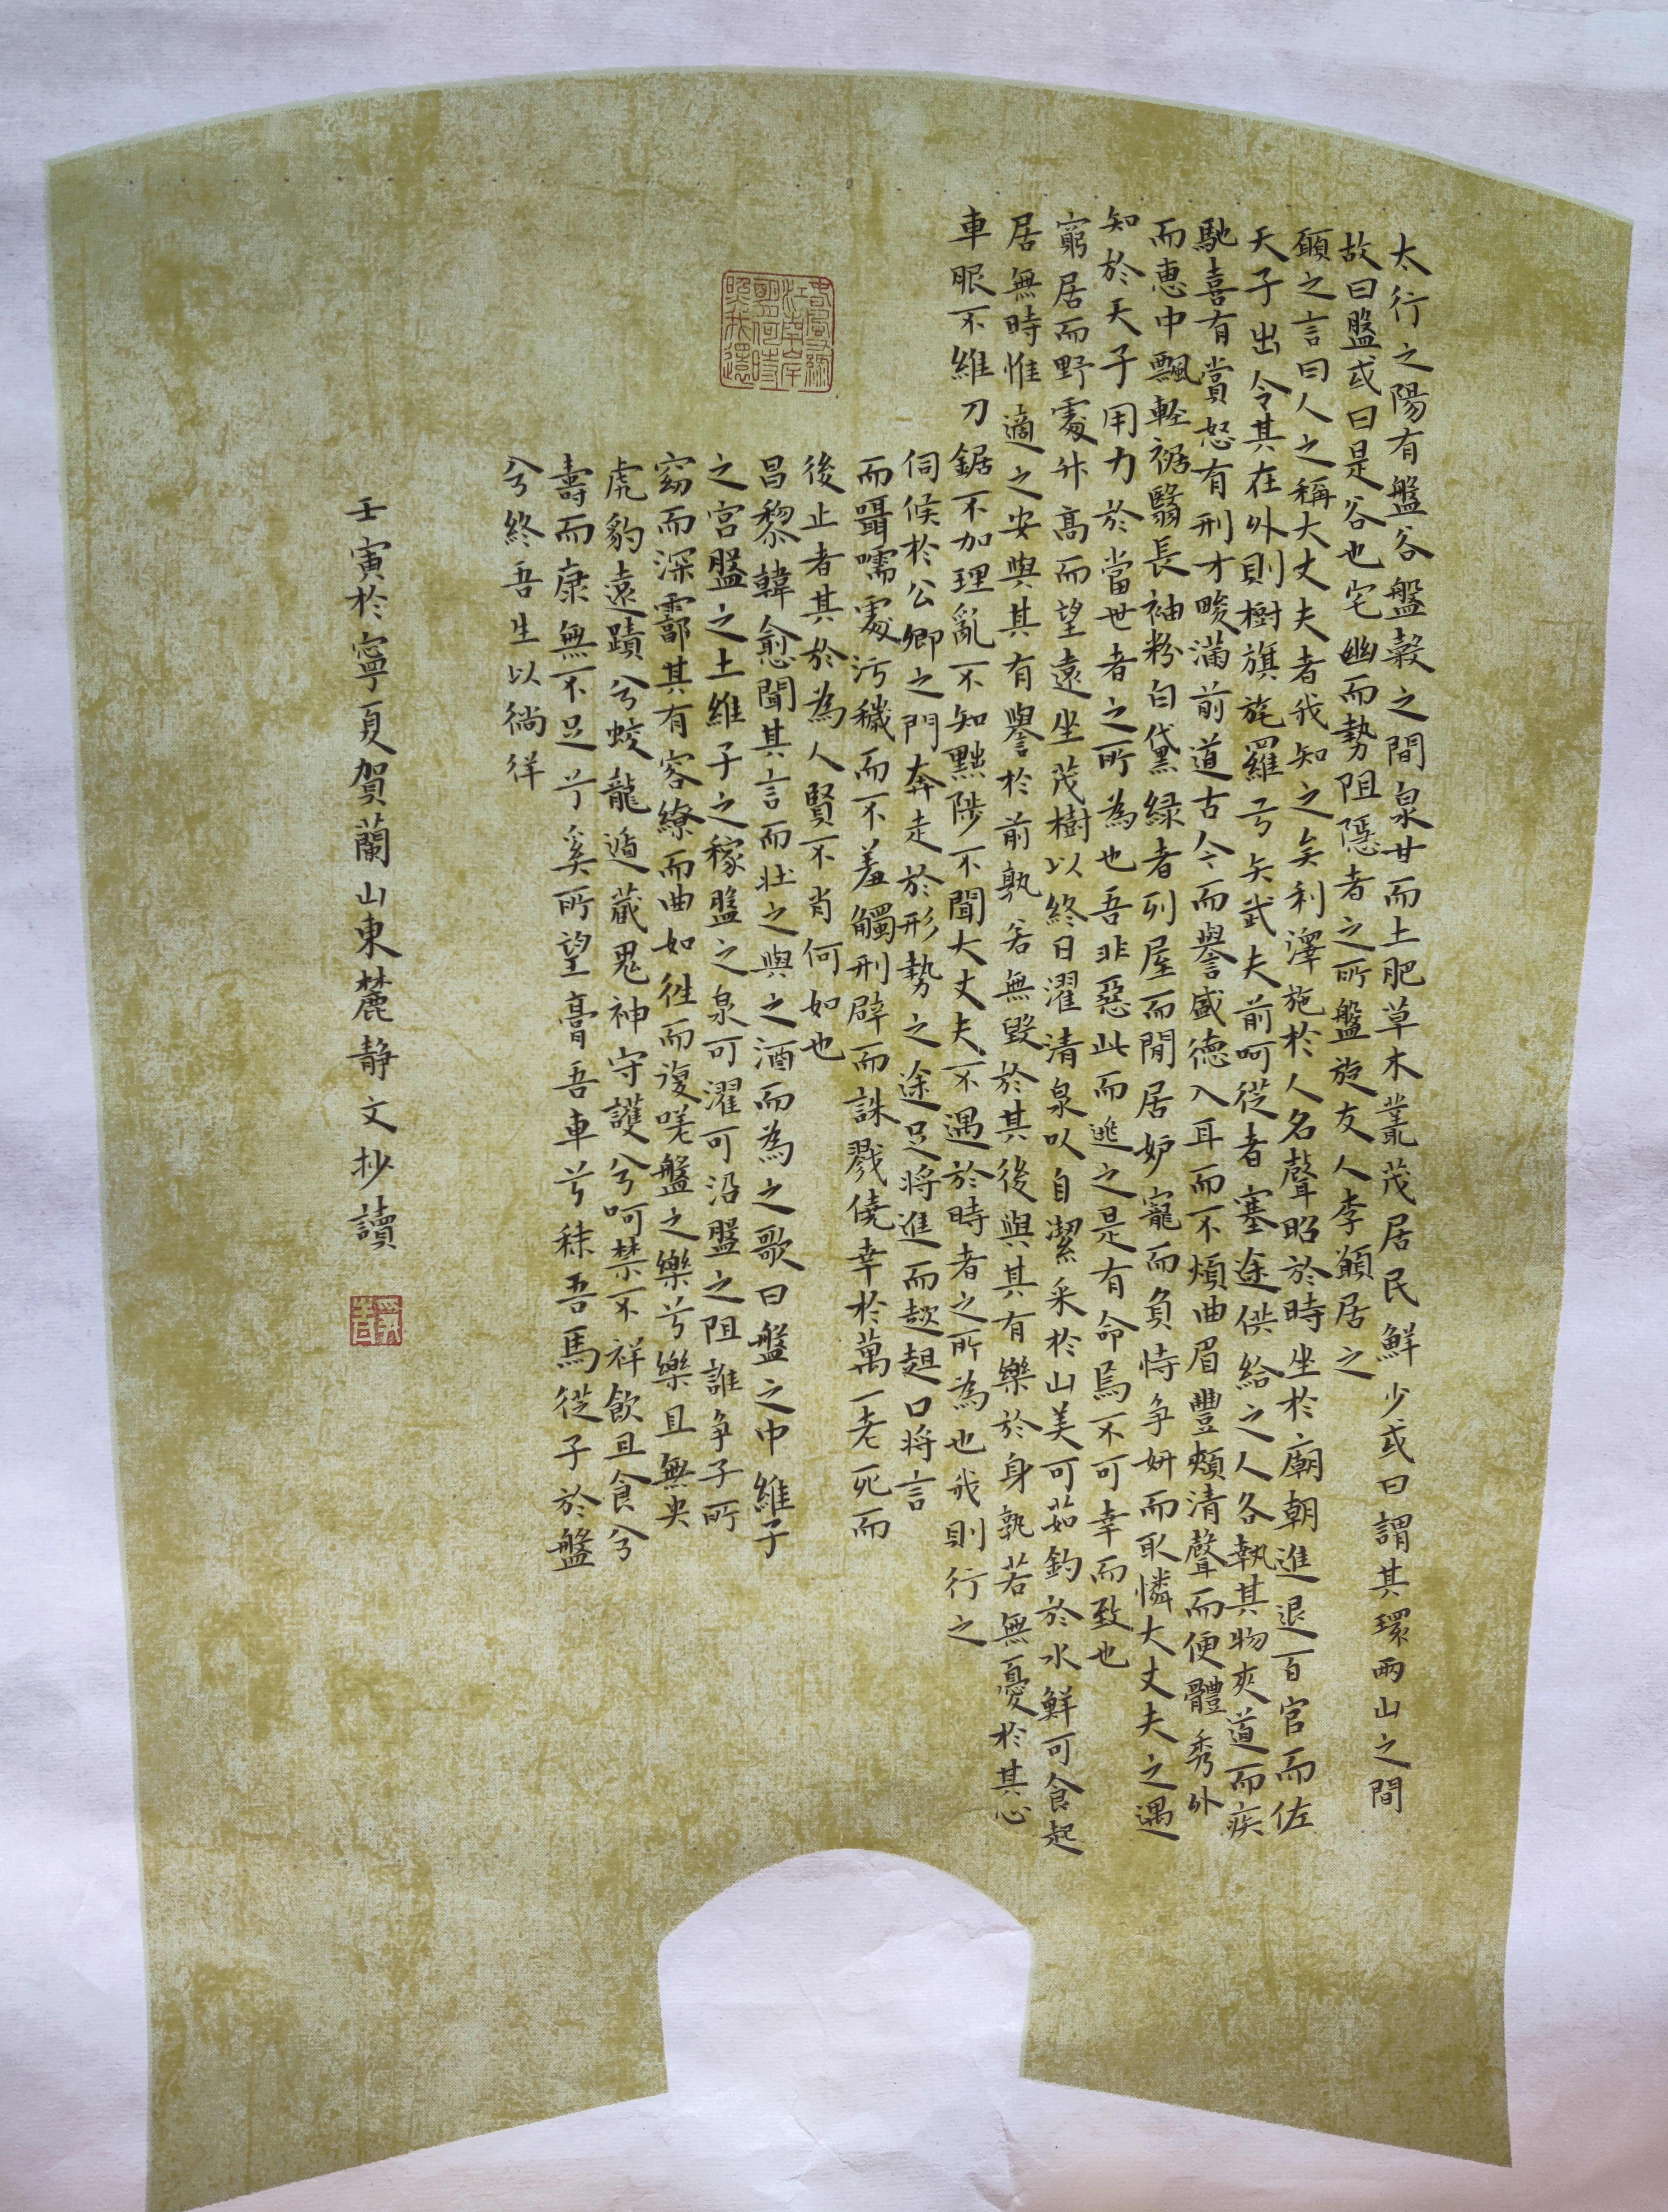 太行之陽有盤谷盤穀之間泉甘而土肥草木藂茂居民鮮少或曰謂其環兩山之間
故曰盤或曰是谷也宅幽而勢阻隱者之所盤旋友人李願居之
願之言曰人之稱大丈夫者我知之矣利澤施於人名聲昭於時坐於廟朝進退百官而佐
天子出令其在外則樹旗旄羅弓矢武夫前呵從者塞途供給之人各執其物夾道而疾
馳喜有賞怒有刑才畯滿前道古今而譽盛德入耳而不煩曲眉豐頰清聲而便體秀外
而惠中飄輕裾翳長袖粉白黛綠者列屋而閒居妒寵而負恃爭妍而取憐大丈夫之遇
知於天子用力於當世者之所為也吾非惡此而逃之是有命焉不可幸而致也
窮居而野處升高而望遠坐茂樹以終日濯清泉以自潔采於山美可茹釣於水鮮可食起
居無時惟適之安與其有譽於前孰若無毀於其後與其有樂於身孰若無憂於其心
車服不維刀鋸不加理亂不知黜陟不聞大丈夫不遇於時者之所為也我則行之
伺候於公卿之門奔走於形勢之途足將進而趑趄口將言
而囁嚅處污穢而不羞觸刑辟而誅戮僥幸於萬一老死而
後止者其於為人賢不肖何如也
昌黎韓愈聞其言而壯之與之酒而為之歌曰盤之中維子
之宮盤之土維子之稼盤之泉可濯可沿盤之阻誰爭子所
窈而深霩其有容繚而曲如徃而復嗟盤之樂兮樂且無央
虎豹遠蹟兮蛟龍遁藏鬼神守護兮呵禁不祥飲且食兮
壽而康無不足兮奚所望膏吾車兮秣吾馬從子於盤
兮終吾生以徜徉
壬寅於寧夏賀蘭山東麓靜文抄讀
春風又綠
江南岸
明月何時
照我還